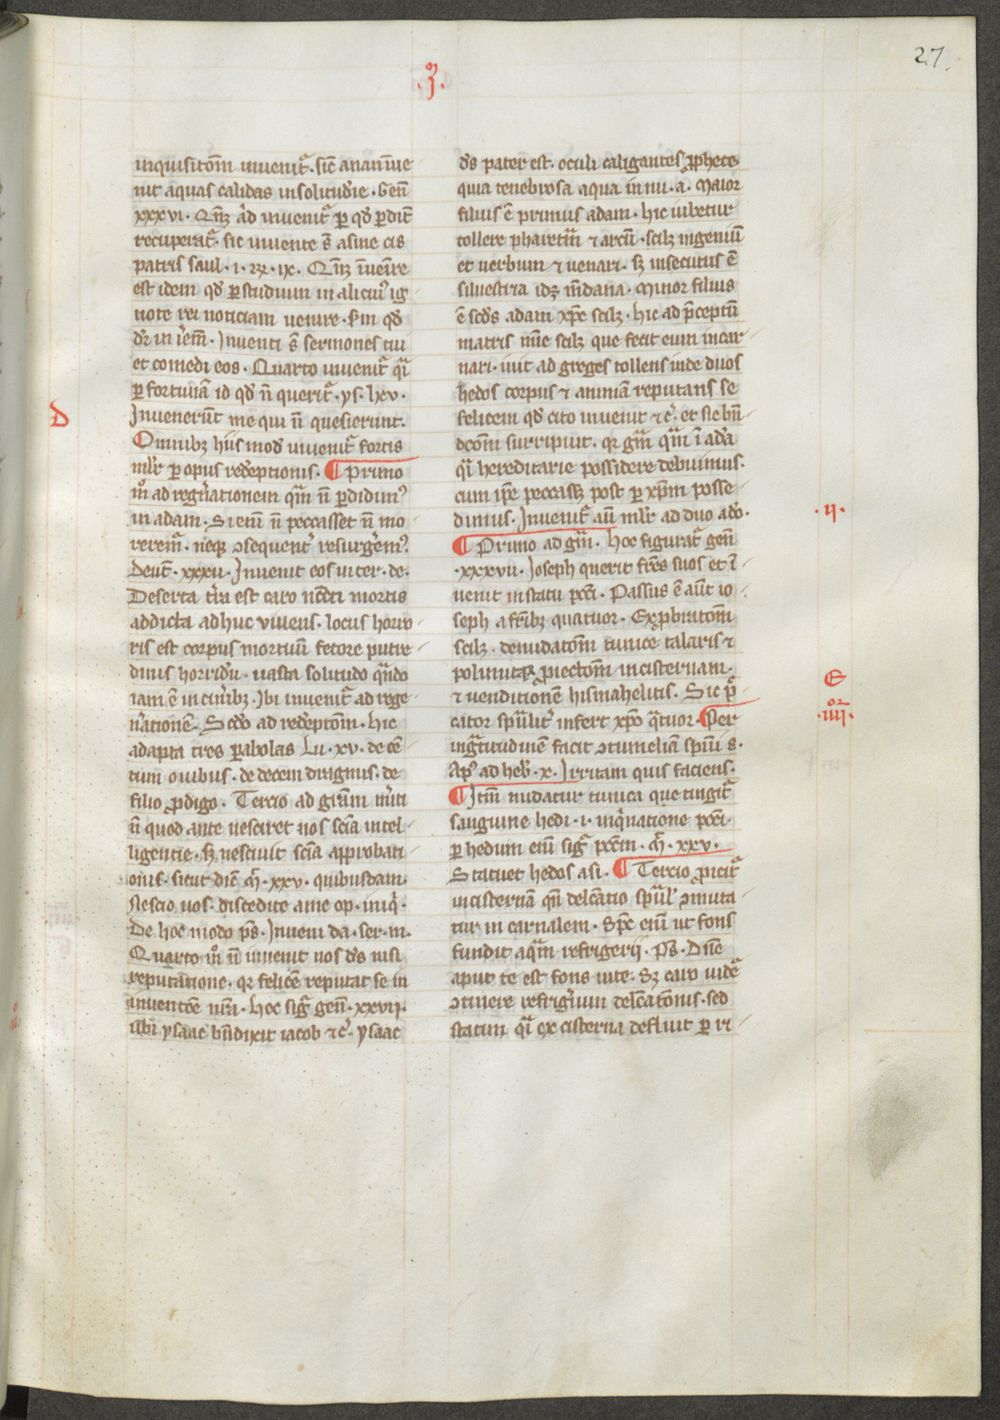 27.
.3.
inquisitoīn inuenit᷑. sic̄ anan inue
nit aquas calidas in solitudīe. Gen̄
xxxvi. Qn̄qʒ ad inuenit᷑ ꝑ qđ ꝑdit᷑
recuperat᷑. sic inuente s̄t asine cis
patris saul. i. Rꝝ. ix. Qn̄qʒ inuēire
est idem qđ ꝑ studium in alicuiꝰ ig
note rei noticiam uenire. Scđm qđ
dr̄ in ieꝛ̄. Inuenti s̄t sermones tui
et comedi eos. Quarto inuenit᷑ qͥ
ꝑ fortunā id qđ n̄ querit᷑. ys. lxv.
D
Inuenerūt me qui n̄ quesierunt.
Omnibꝫ hiis mod̄ inuenit᷑ fortis
mlr̄ ꝑ opus redēptionis. ¶ Primo
m̊ ad reg̃nationem qͣm n̄ ꝑdidimꝰ
in adam. Si eni᷑ n̄ peccasset n̄ mo
rerem᷑. neqꝫ ꝯsequent᷑ resurgēmꝰ.
Deut̄. xxxii. Inuenit eos in ter. de.
Deserta tr̄a est caro nc̄dꝫ mortis
addicta adhuc viuens. locus horro
ris est corpus mortuū fetore putre
dinis horridū. uasta solitudo qn̄do
iam ē in cinībꝫ. Ibi inuenit᷑ ad rege
nr̄ationē. Scđo ad redēptoīn. Hic
adapta tres ꝑabolas Lu. xv. de cē
tum ouibus. de decem dragmis. de
filio ꝓdigo. Tercio ad grām nr̄i
n̄ quod ante nesciret nos sc̄ia intel
ligentie. sꝫ nesciuit sc̄ia approbati
onis. sicut dic̄ Mͭ. xxv. quibusdam.
Nescio uos. discedite a me op. iniq̄.
De hoc modo ps̄. Inueni da. ser. m.
Quarto m̊ n̄ inuenit nos dn̄s nisi
reputatione. qꝛ felicē reputat se in
inuentōe nr̄a. Hoc sig᷑ gen̄. xxvii.
ubi ysaac bn̄dixit iacob ⁊c̄. ysaac
dn̄s pater est. oculi caligantes ꝓphete
quia tenebrosa aqua in nu. a. Maior
filius ē primus adam. hic iubetur
tollere pharetrā ⁊ arcū. scilꝫ ingeniū
et uerbum ⁊ uenari. sꝫ insecutus ē
siluestria idꝫ mūdana. Minor filius
ē scđs adam xp̄c scilꝫ. hic ad p̄ceptū
matris mīe scilꝫ que fecit eum incar
nari. iuit ad greges tollens inde duos
hedos corpus ⁊ animā reputans se
felicem qđ cito inuenit ⁊c̄. et sic bn̄
dcōm surripuit. qꝛ grām qͣm ī adā
qͣ hereditarie possidere debuimus.
cum ip̄e peccasꝫ post ꝑ xp̄m posse
.ii.
dimus. Inuenit᷑ aūt mlr̄ ad duo ado.
¶ Primo ad grām. Hoc figurat᷑ gen̄
.xxxvii. Ioseph querit fr̄es suos et ī
uenit in statu pcc̄i. Passus ē aūt io
seph a fr̄ibꝫ quatuor. Exprobratoīn
scilꝫ. denudatoīn tunice talaris ⁊
E
pollutaꝫ ꝓiectoīn in cisternam.
⁊ uenditionē hismahelitis. Sic p̄
.iiii.
cator spūalit᷑ infert xp̄o qͣtuor. Per
ingͣtitudinē facit ꝯtumeliā spiritui s.
Apꝰ ad heb̄. x. Irritam quis faciens.
¶ Itm̄ nudatur tunica que tingit᷑
sanguine hedi. i. inqͥnatione pcc̄i.
ꝑ hedum eni᷑ sig᷑ pcc̄m. Mͭ. xxv.
Statuet hedos a si. ¶ Tercio ꝓicit᷑
in cisternā qn̄ delc̄atio spūal' ꝯmuta
tur in carnalem. Spc̄ eni᷑ ut fons
fundit aquam refrigerii. Ps̄. Dn̄e
aput te est fons uite. Sꝫ caro uidet᷑
ꝯtinere refrig̃ium delc̄atonis. sed
statim qͣ ex cisterna defluit ꝑ ri